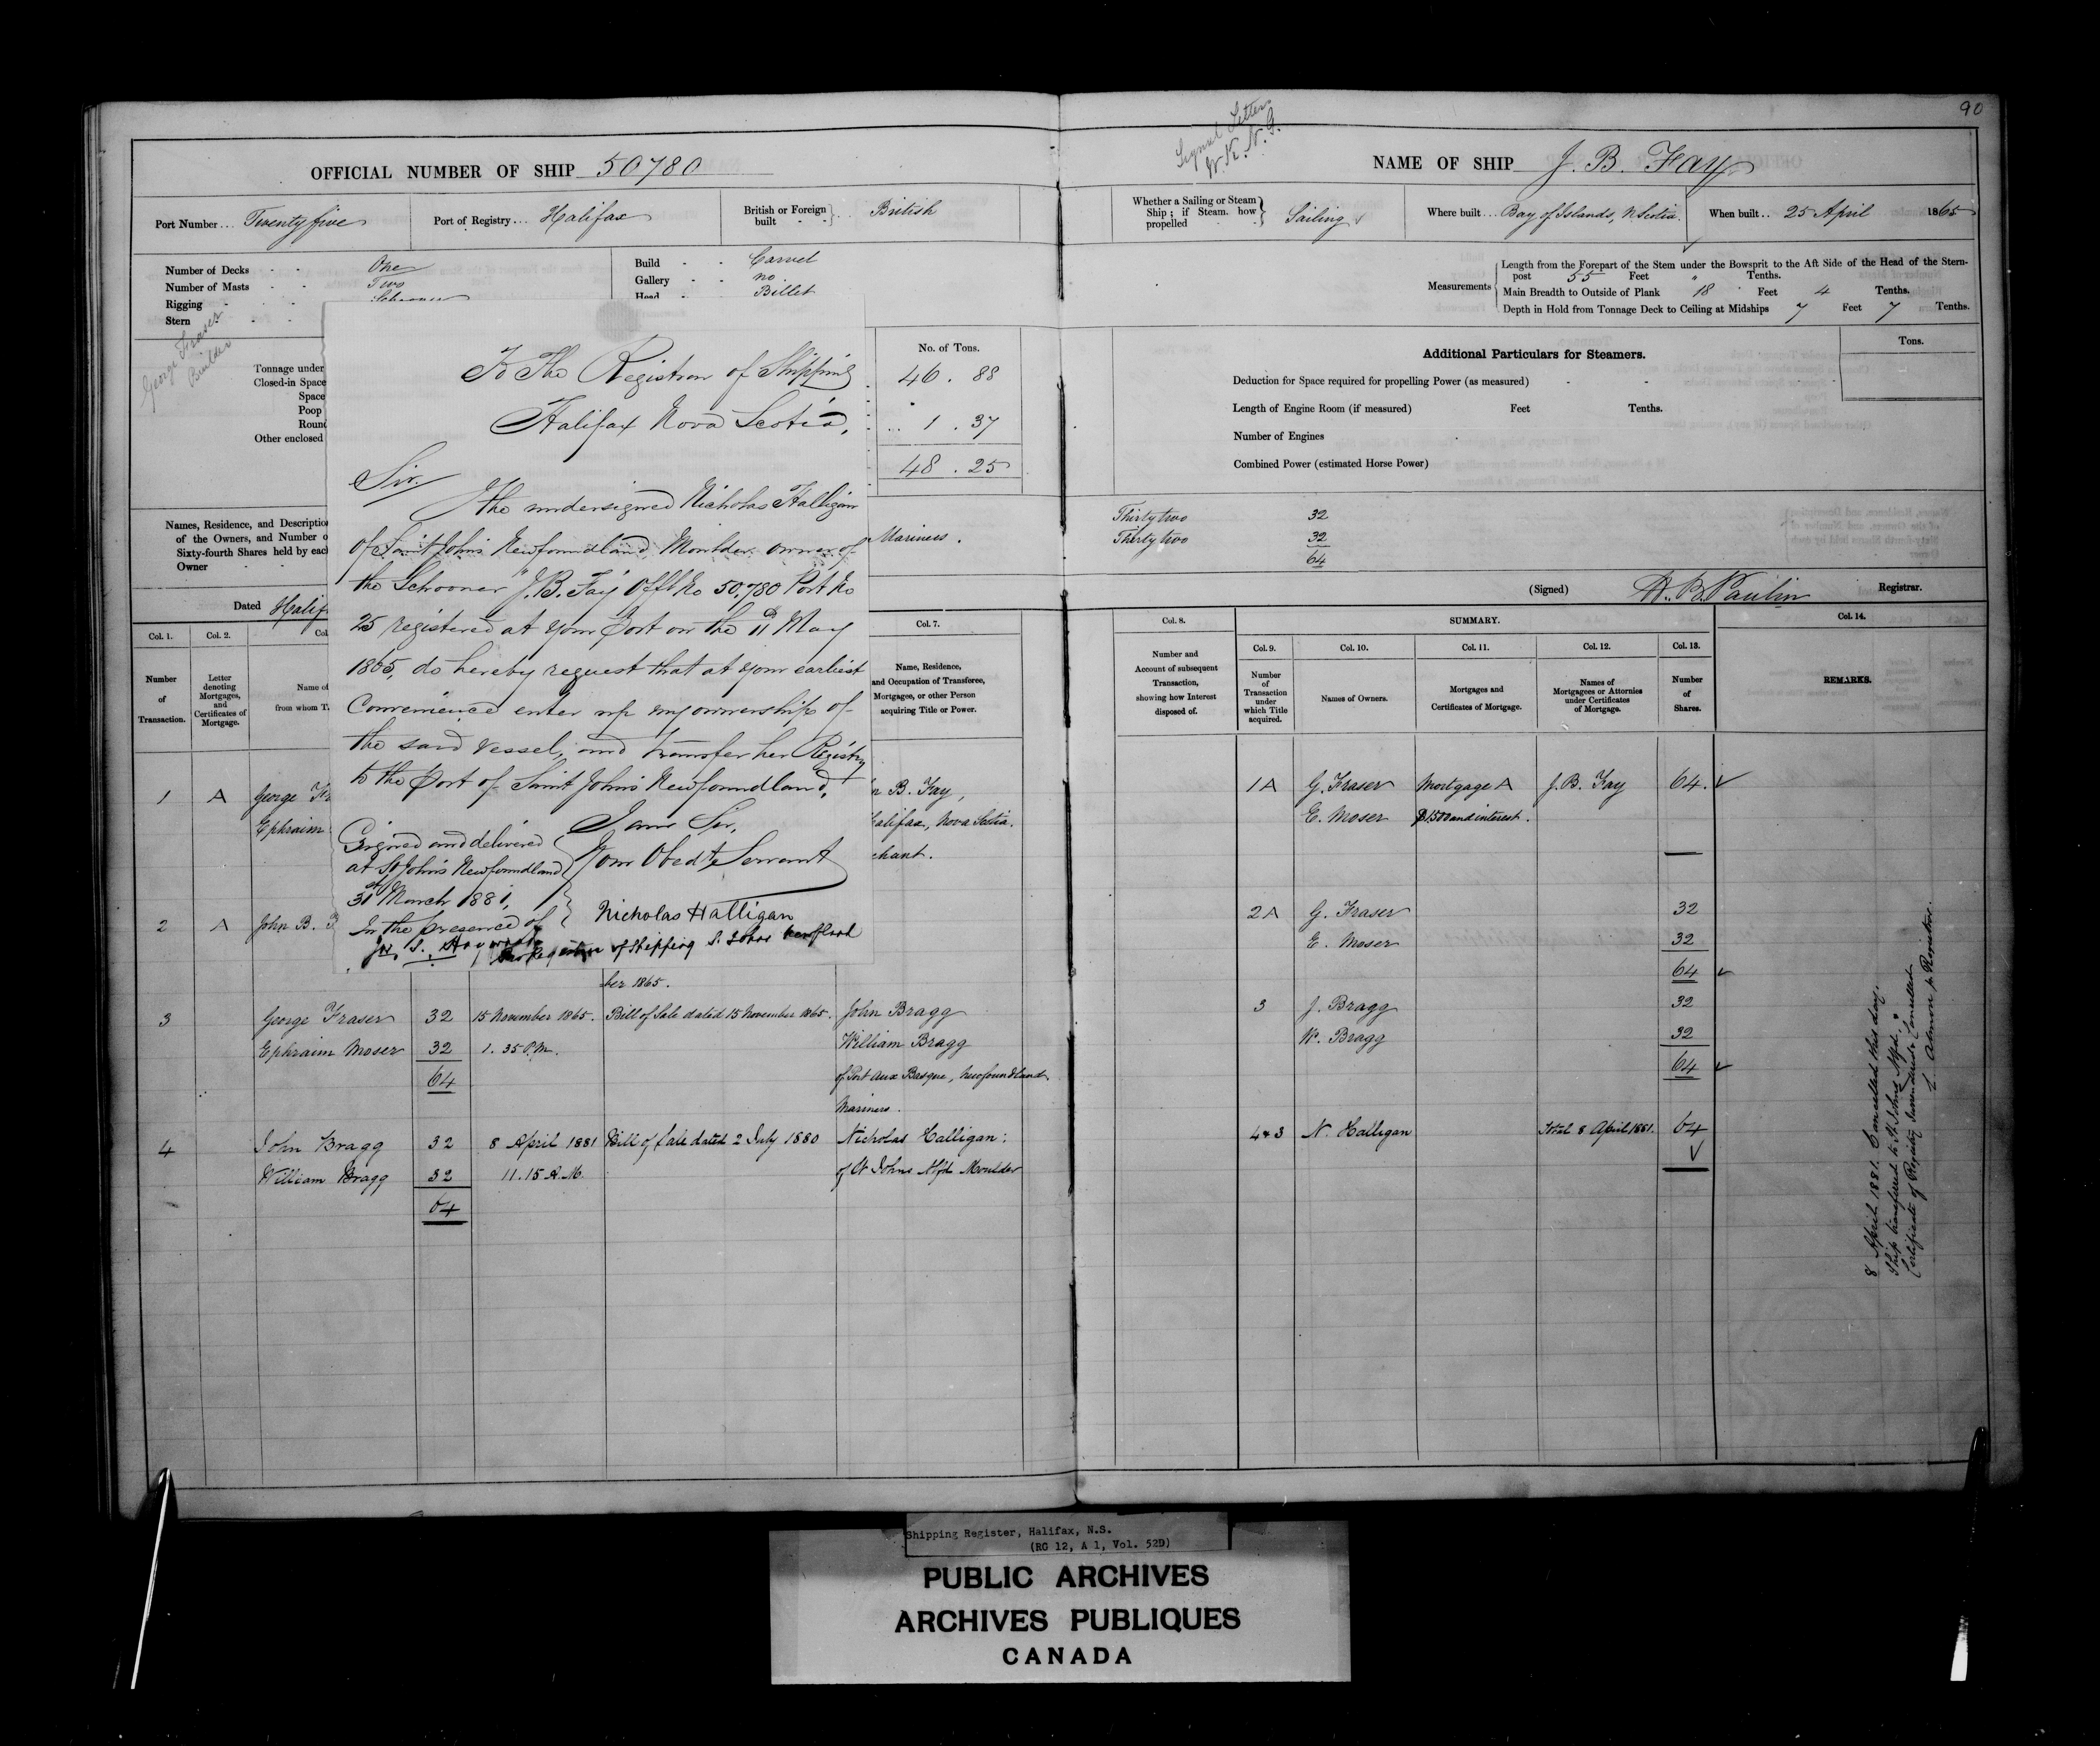 90
Signal Letters
W. K. N. G.
OFFICIAL NUMBER OF SHIP 50780
NAME OF SHIP J. B. Fay
Port Number... Twenty five
Port of Registry... Halifax
British or Foreign built - - } .. British
Whether a Sailing or Steam Ship ; if Steam. how propelled } Sailing
Where built... Bay of Islands, N. Scotia.
When built.. 25 April 1865
Number of Decks - - One
Number of Masts - - Two
Rigging - - Schooner
Stern - -
Build - - Carvel
Gallery - - no
Head - Billet
Measurements
Length from the Forepart of the Stem under the Bowsprit to the Aft Side of the Head of the Stern-
post 55 Feet " Tenths.
Main Breadth to Outside of Plank 18 Feet 4 Tenths.
Depth in Hold from Tonnage Deck to Ceiling at Midships 7 Feet 7 Tenths.
George Fraser
Builder
Tonnage under
Closed-in Space
Space
Poop
Roun
Other enclosed
No. of Tons.
46 . 88
1 . 37
48 . 25
Additional Particulars for Steamers.
Tons.
Deduction for Space required for propelling Power (as measured) - - -
Length of Engine Room (if measured) Feet Tenths.
Number of Engines
Combined Power (estimated Horse Power)
Names, Residence, and Descriptio
of the Owners, and Number o
Sixty-fourth Shares held by eac
Owner - -
Mariners.
Thirty two 32
Thirty two 32
64
Dated Halif
(Signed) H. B. Paulin Registrar.
To The Registrar of Shipping
Halifax Nova Scotia,
Sir.
The undersigned Nicholas Halligan
of Saint John's Newfoundland Moulder owner of
the Schooner "J. B. Fay Offl No 50,780 Port No
25 registered at your Port on the 11th May
1865, do hereby request that at your earliest
Convenience enter up my ownership of
the said vessel, and transfer her Registry
to the Port of Saint John's Newfoundland,
I am Sir,
Your Obedt Servant
Nicholas Halligan
Signed and delivered
at St John's Newfoundland
31st March 1881,
In the presence of
Registrar of Shipping S. Johns Newflnd
Col. 1.
Col. 2.
Col
Col. 7.
Col. 8.
SUMMARY.
Col. 14.
Col. 9.
Col. 10.
Col. 11.
Col. 12.
Col. 13.
Number of Transaction.
Letter denoting Mortgages, and Certificates of Mortgage.
Name of
from whom T
Name, Residence, and Occupation of Transferee, Mortgagee, or other Person acquiring Title or Power.
Number and Account of subsequent Transaction, showing how Interest disposed of.
Number of Transaction under which Title acquired.
Names of Owners.
Mortgages and Certificates of Mortgage.
Names of Mortgagees or Attornies under Certificates of Mortgage.
Number of Shares.
REMARKS.
1 A George Fra
Ephraim
n B. Fay,
Halifax, Nova Scotia.
chant.
1 A G. Fraser Mortgage A J. B. Fay 64.
E. Moser $1500 and interest.
2 A John B. F
ber 1865.
2 A G. Fraser 32
E. Moser 32
64
3 George Fraser 32 15 November 1865. Bill of Sale dated 15 November 1865. John Bragg
Ephraim Moser 32 1. 35 P.M. William Bragg
64 of Port aux Basque, Newfoundland
Mariners.
3 J. Bragg 32
W. Bragg 32
64
4 John Bragg 32 8 April 1881 Bill of Sale dated 2 July 1880 Nicholas Halligan:
William Bragg 32 11.15 A.M. of St Johns Nfld Moulder
64
4 & 3 N. Halligan Total 8 April 1881. 64
8 April 1881. Cancelled this day.
Ship transferred to St. Johns Nfd.,
Certificate of Registry surrendered & cancelled
L. Almon p. Registrar.
Shipping Register, Halifax, N.S.
(RG 12, A 1, Vol. 52D)
PUBLIC ARCHIVES
ARCHIVES PUBLIQUES
CANADA